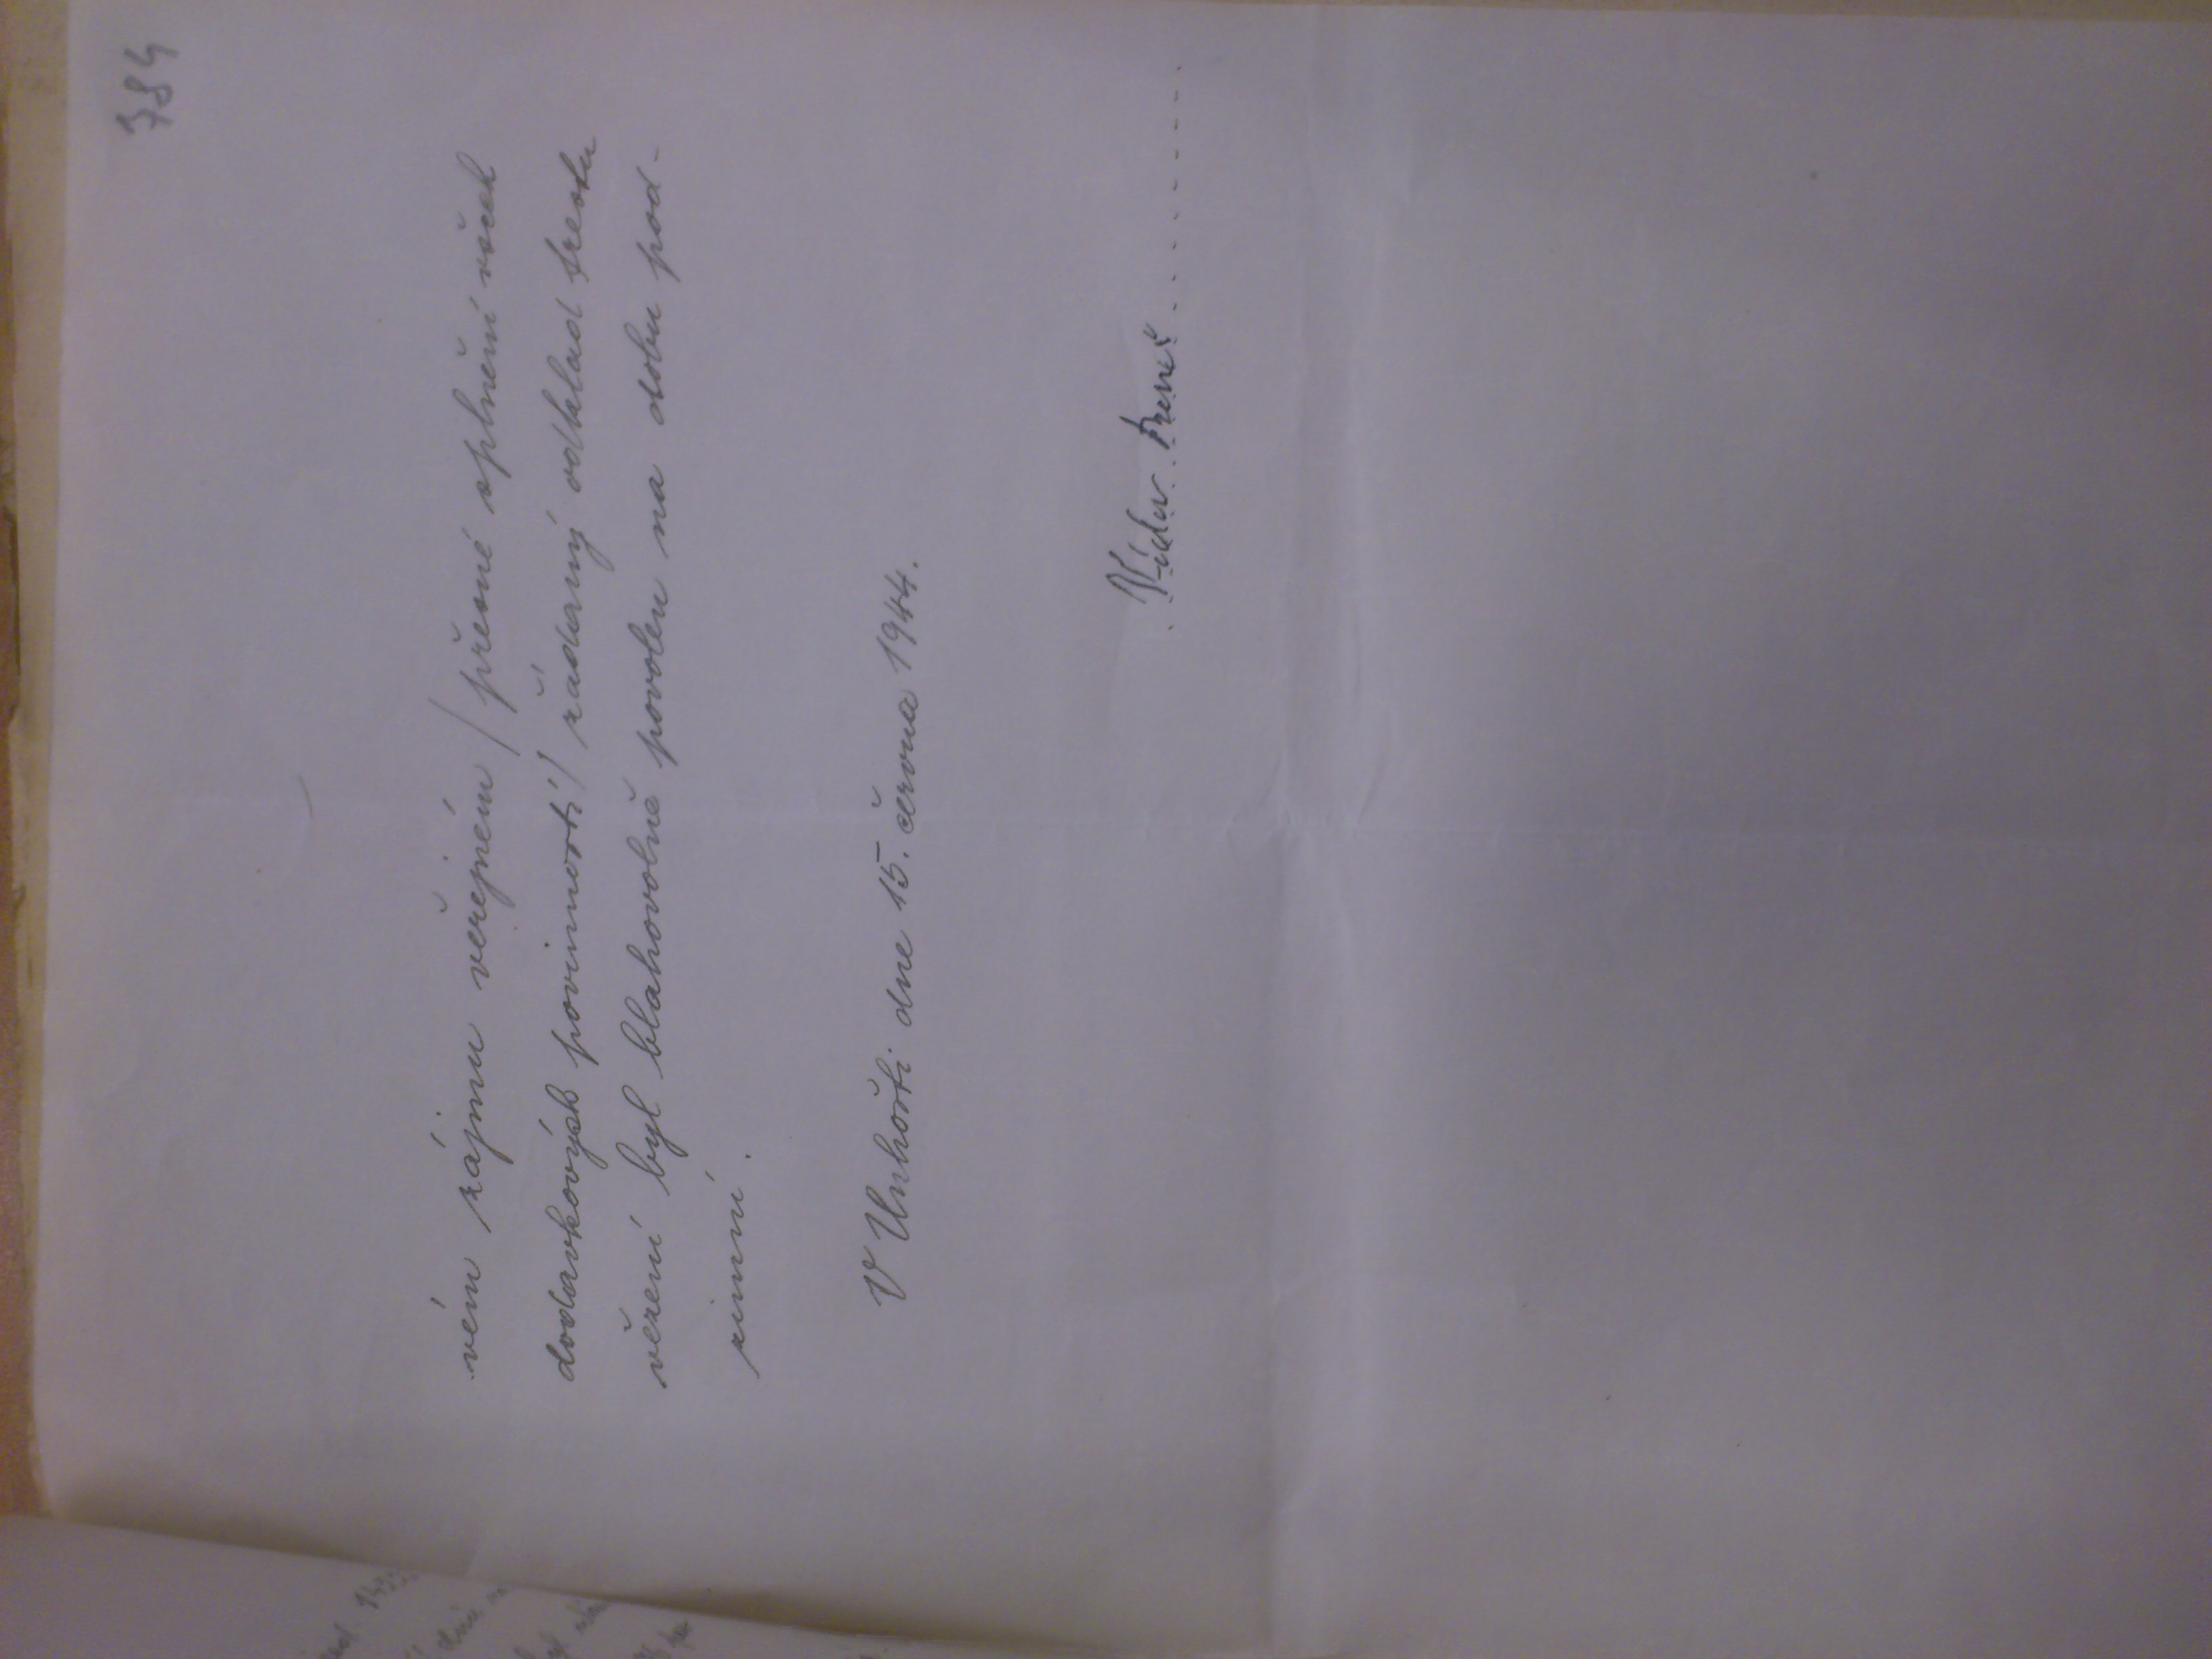 784
vém zájmu veřejném / přesné splnění všech
dodavkových povinností / žádaný odklad trestu
vězení byl blahovolně povolen na dobu pod-
zimní.
V Unhošti dne 15. června 1944.
Václav